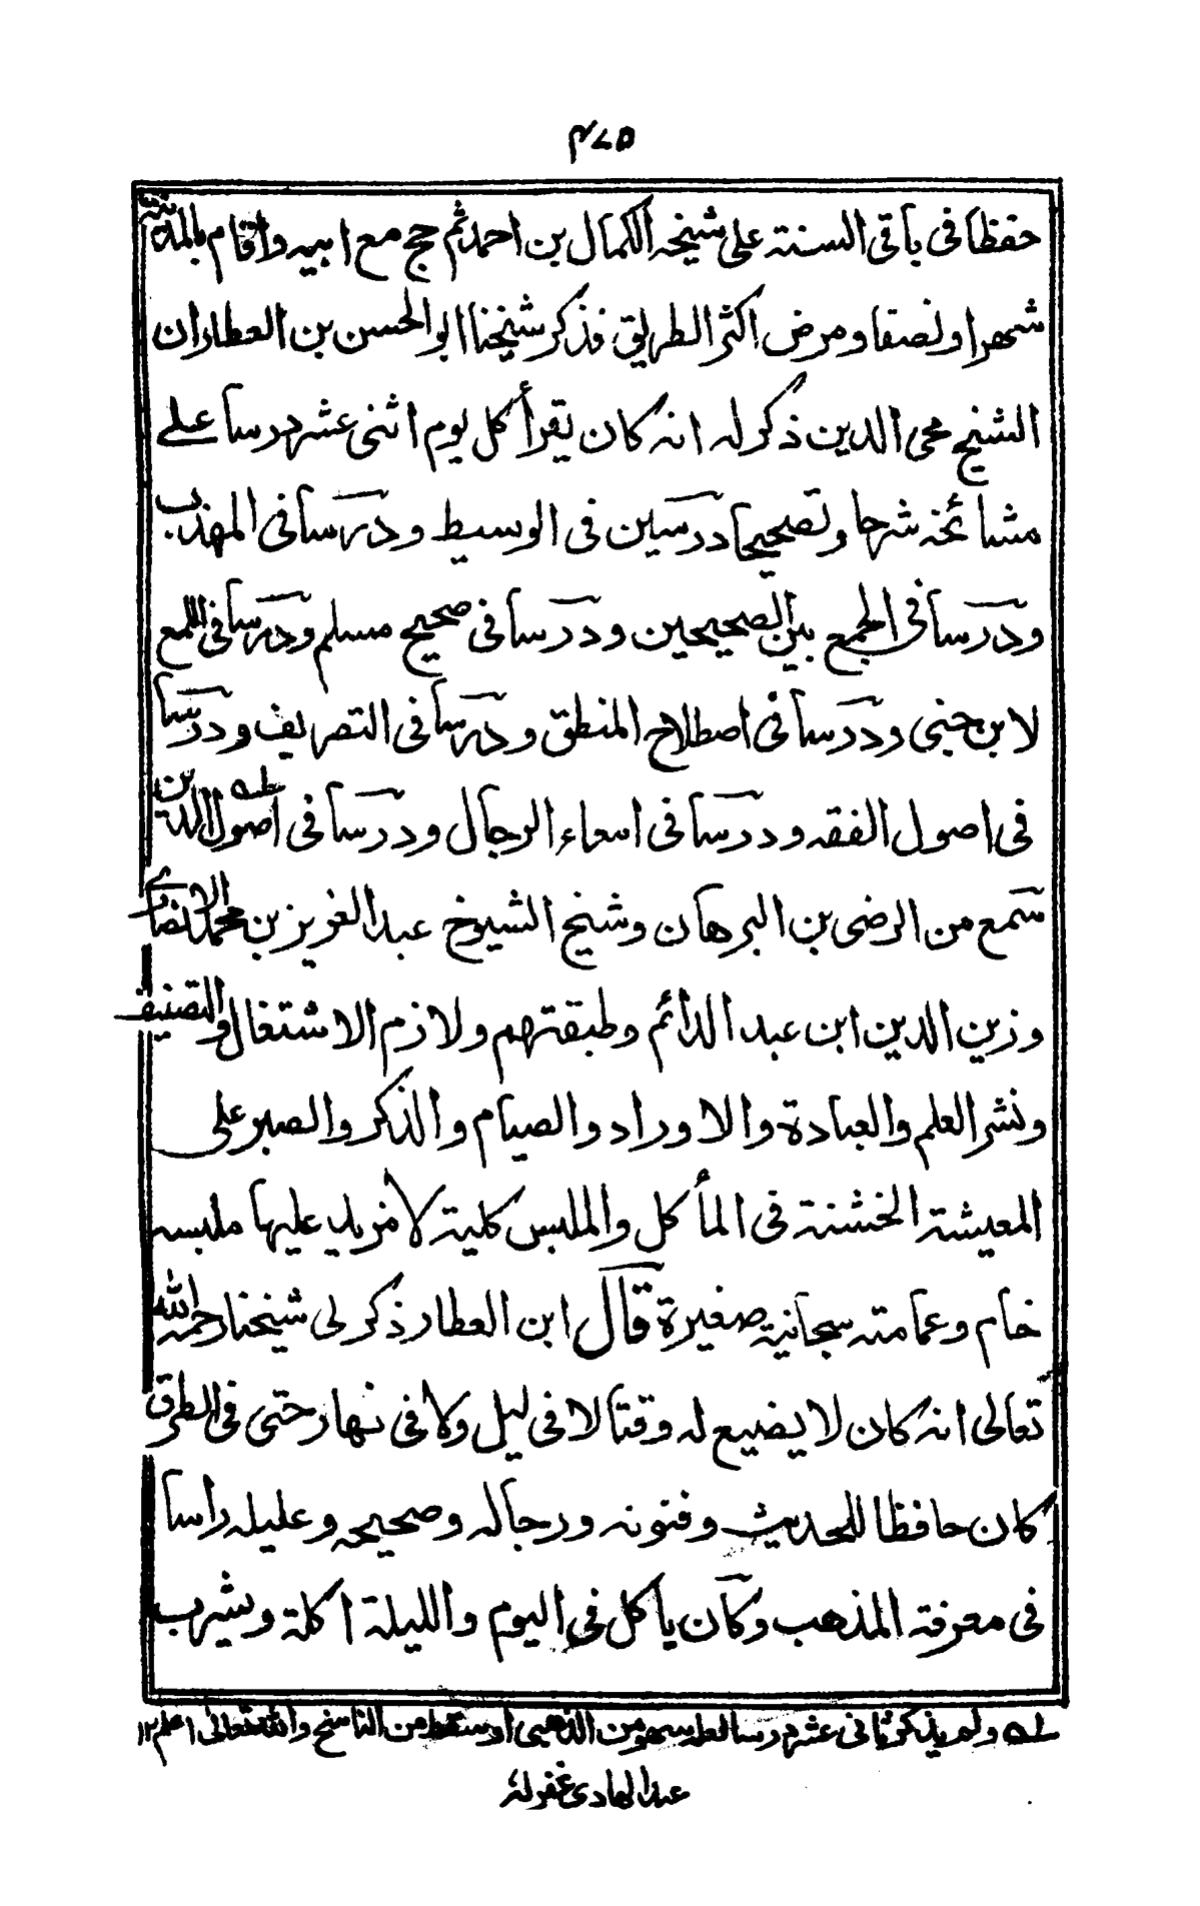 ٤٧٥
حفظا فى باقى السنة على شيخه الكمال بن احمد ثم حج مع ابيه واقام بالمدينة
شهرا ونصفا ومرض اكثر الطريق فذكر شيخنا ابو الحسن بن العطار ان
الشيخ محى الدين ذكر له انه كان يقرأ كل يوم اثنى عشر درسا على
مشائخه شرحا وتصحيحا درسين فى الوسيط ودرسا فى المهذب
ودرسا فى الجمع بين الصحيحين ودرسا فى صحيح مسلم ودرسا فى اللمع
لابن جنبى ودرسا فى اصطلاح المنطق ودرسا فى التصريف ودرسا
فى اصول الفقه ودرسا فى اسماء الرجال ودرسا فى اصول الدين له
سمع من الرضى بن البرهان وشيخ الشيوخ عبد العزيز بن محمد الانصارى
وزين الدين ابن عبد الدائم وطبقتهم ولازم الاشتغال والتصنيف
ونشر العلم والعبادة والاوراد والصيام والذكر والصبر على
المعيشة الخشنة فى المأكل والملبس كلية لا مزيد عليها ملبسه
خام وعمامته سجانية صغيرة قال ابن العطار ذكر لى شيخنا رحمه الله
تعالى انه كان لا يضيع له وقتا لا فى ليل ولا فى نهار حتى فى الطرق
كان حافظا للحديث وفنونه ورجاله وصحيحه وعليله راسا
فى معرفة المذهب وكان ياكل فى اليوم والليلة اكلة ويشرب
له ولم يذكر ثانى عشر درسا لعله سهو من الذهبى او سقط من الناسخ والله تعالى اعلم ١٢
عبد الهادى غفر له